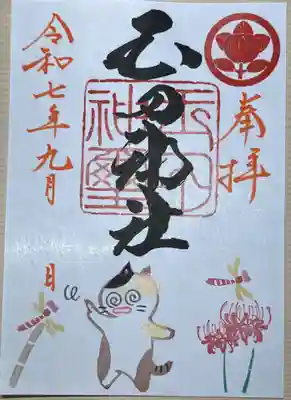 奉拝
玉田神社
玉田
神璽
令和七年九月 日